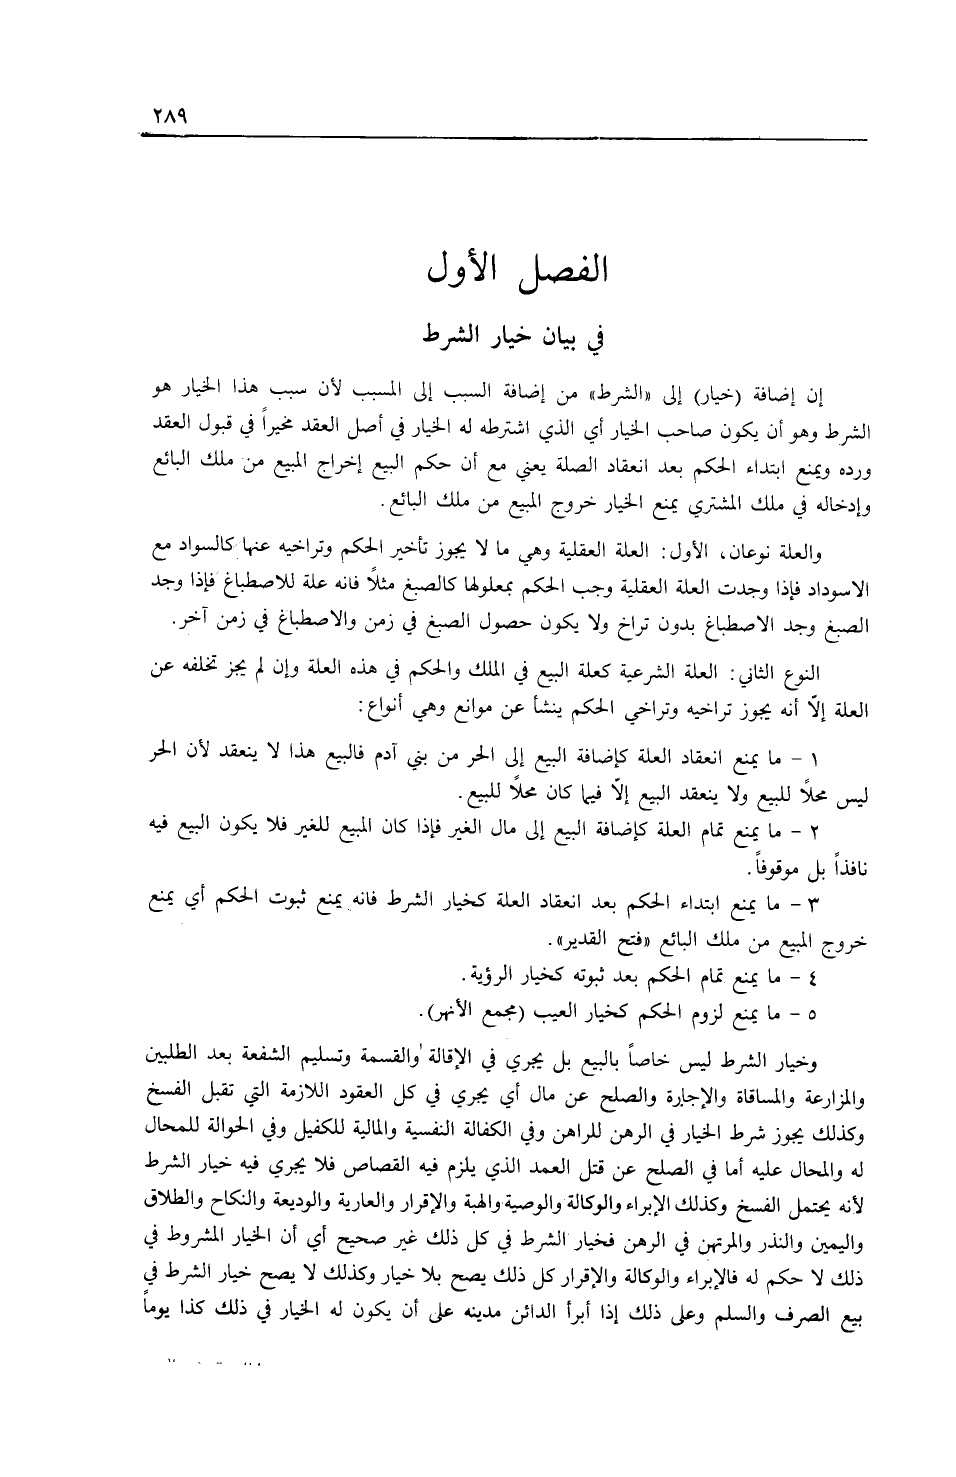 ٢٨٩
الفصل الأول
في بيان خيار الشرط
إن إضافة (خيار) إلى «الشرط» من إضافة السبب إلى المسبب لأن سبب هذا الخيار هو
الشرط وهو أن يكون صاحب الخيار أي الذي اشترطه له الخيار في أصل العقد مخيراً في قبول العقد
ورده ويمنع ابتداء الحكم بعد انعقاد الصلة يعني مع أن حكم البيع إخراج المبيع من ملك البائع
وإدخاله في ملك المشتري يمنع الخيار خروج المبيع من ملك البائع.
والعلة نوعان، الأول: العلة العقلية وهي ما لا يجوز تأخير الحكم وتراخيه عنها كالسواد مع
الاسوداد فإذا وجدت العلة العقلية وجب الحكم بمعلولها كالصبغ مثلاً فانه علة للاصطباغ فإذا وجد
الصبغ وجد الاصطباغ بدون تراخ ولا يكون حصول الصبغ في زمن والاصطباغ في زمن آخر.
النوع الثاني: العلة الشرعية كعلة البيع في الملك والحكم في هذه العلة وإن لم يجز تخلفه عن
العلة إلّا أنه يجوز تراخيه وتراخي الحكم ينشأ عن موانع وهي أنواع:
١ - ما يمنع انعقاد العلة كإضافة البيع إلى الحر من بني آدم فالبيع هذا لا ينعقد لأن الحر
ليس محلاً للبيع ولا ينعقد البيع إلّا فيما كان محلاً للبيع.
٢ - ما يمنع تمام العلة كإضافة البيع إلى مال الغير فإذا كان المبيع للغير فلا يكون البيع فيه
نافذاً بل موقوفاً.
٣ - ما يمنع ابتداء الحكم بعد انعقاد العلة كخيار الشرط فانه يمنع ثبوت الحكم أي يمنع
خروج المبيع من ملك البائع «فتح القدير».
٤ - ما يمنع تمام الحكم بعد ثبوته كخيار الرؤية.
٥ - ما يمنع لزوم الحكم كخيار العيب (مجمع الأنهر).
وخيار الشرط ليس خاصاً بالبيع بل يجري في الإقالة والقسمة وتسليم الشفعة بعد الطلبين
والمزارعة والمساقاة والإجارة والصلح عن مال أي يجري في كل العقود اللازمة التي تقبل الفسخ
وكذلك يجوز شرط الخيار في الرهن للراهن وفي الكفالة النفسية والمالية للكفيل وفي الحوالة للمحال
له والمحال عليه أما في الصلح عن قتل العمد الذي يلزم فيه القصاص فلا يجري فيه خيار الشرط
لأنه يحتمل الفسخ وكذلك الإبراء والوكالة والوصية والهبة والإقرار والعارية والوديعة والنكاح والطلاق
واليمين والنذر والمرتهن في الرهن فخيار الشرط في كل ذلك غير صحيح أي أن الخيار المشروط في
ذلك لا حكم له فالإبراء والوكالة والإقرار كل ذلك يصح بلا خيار وكذلك لا يصح خيار الشرط في
بيع الصرف والسلم وعلى ذلك إذا أبرأ الدائن مدينه على أن يكون له الخيار في ذلك كذا يوماً